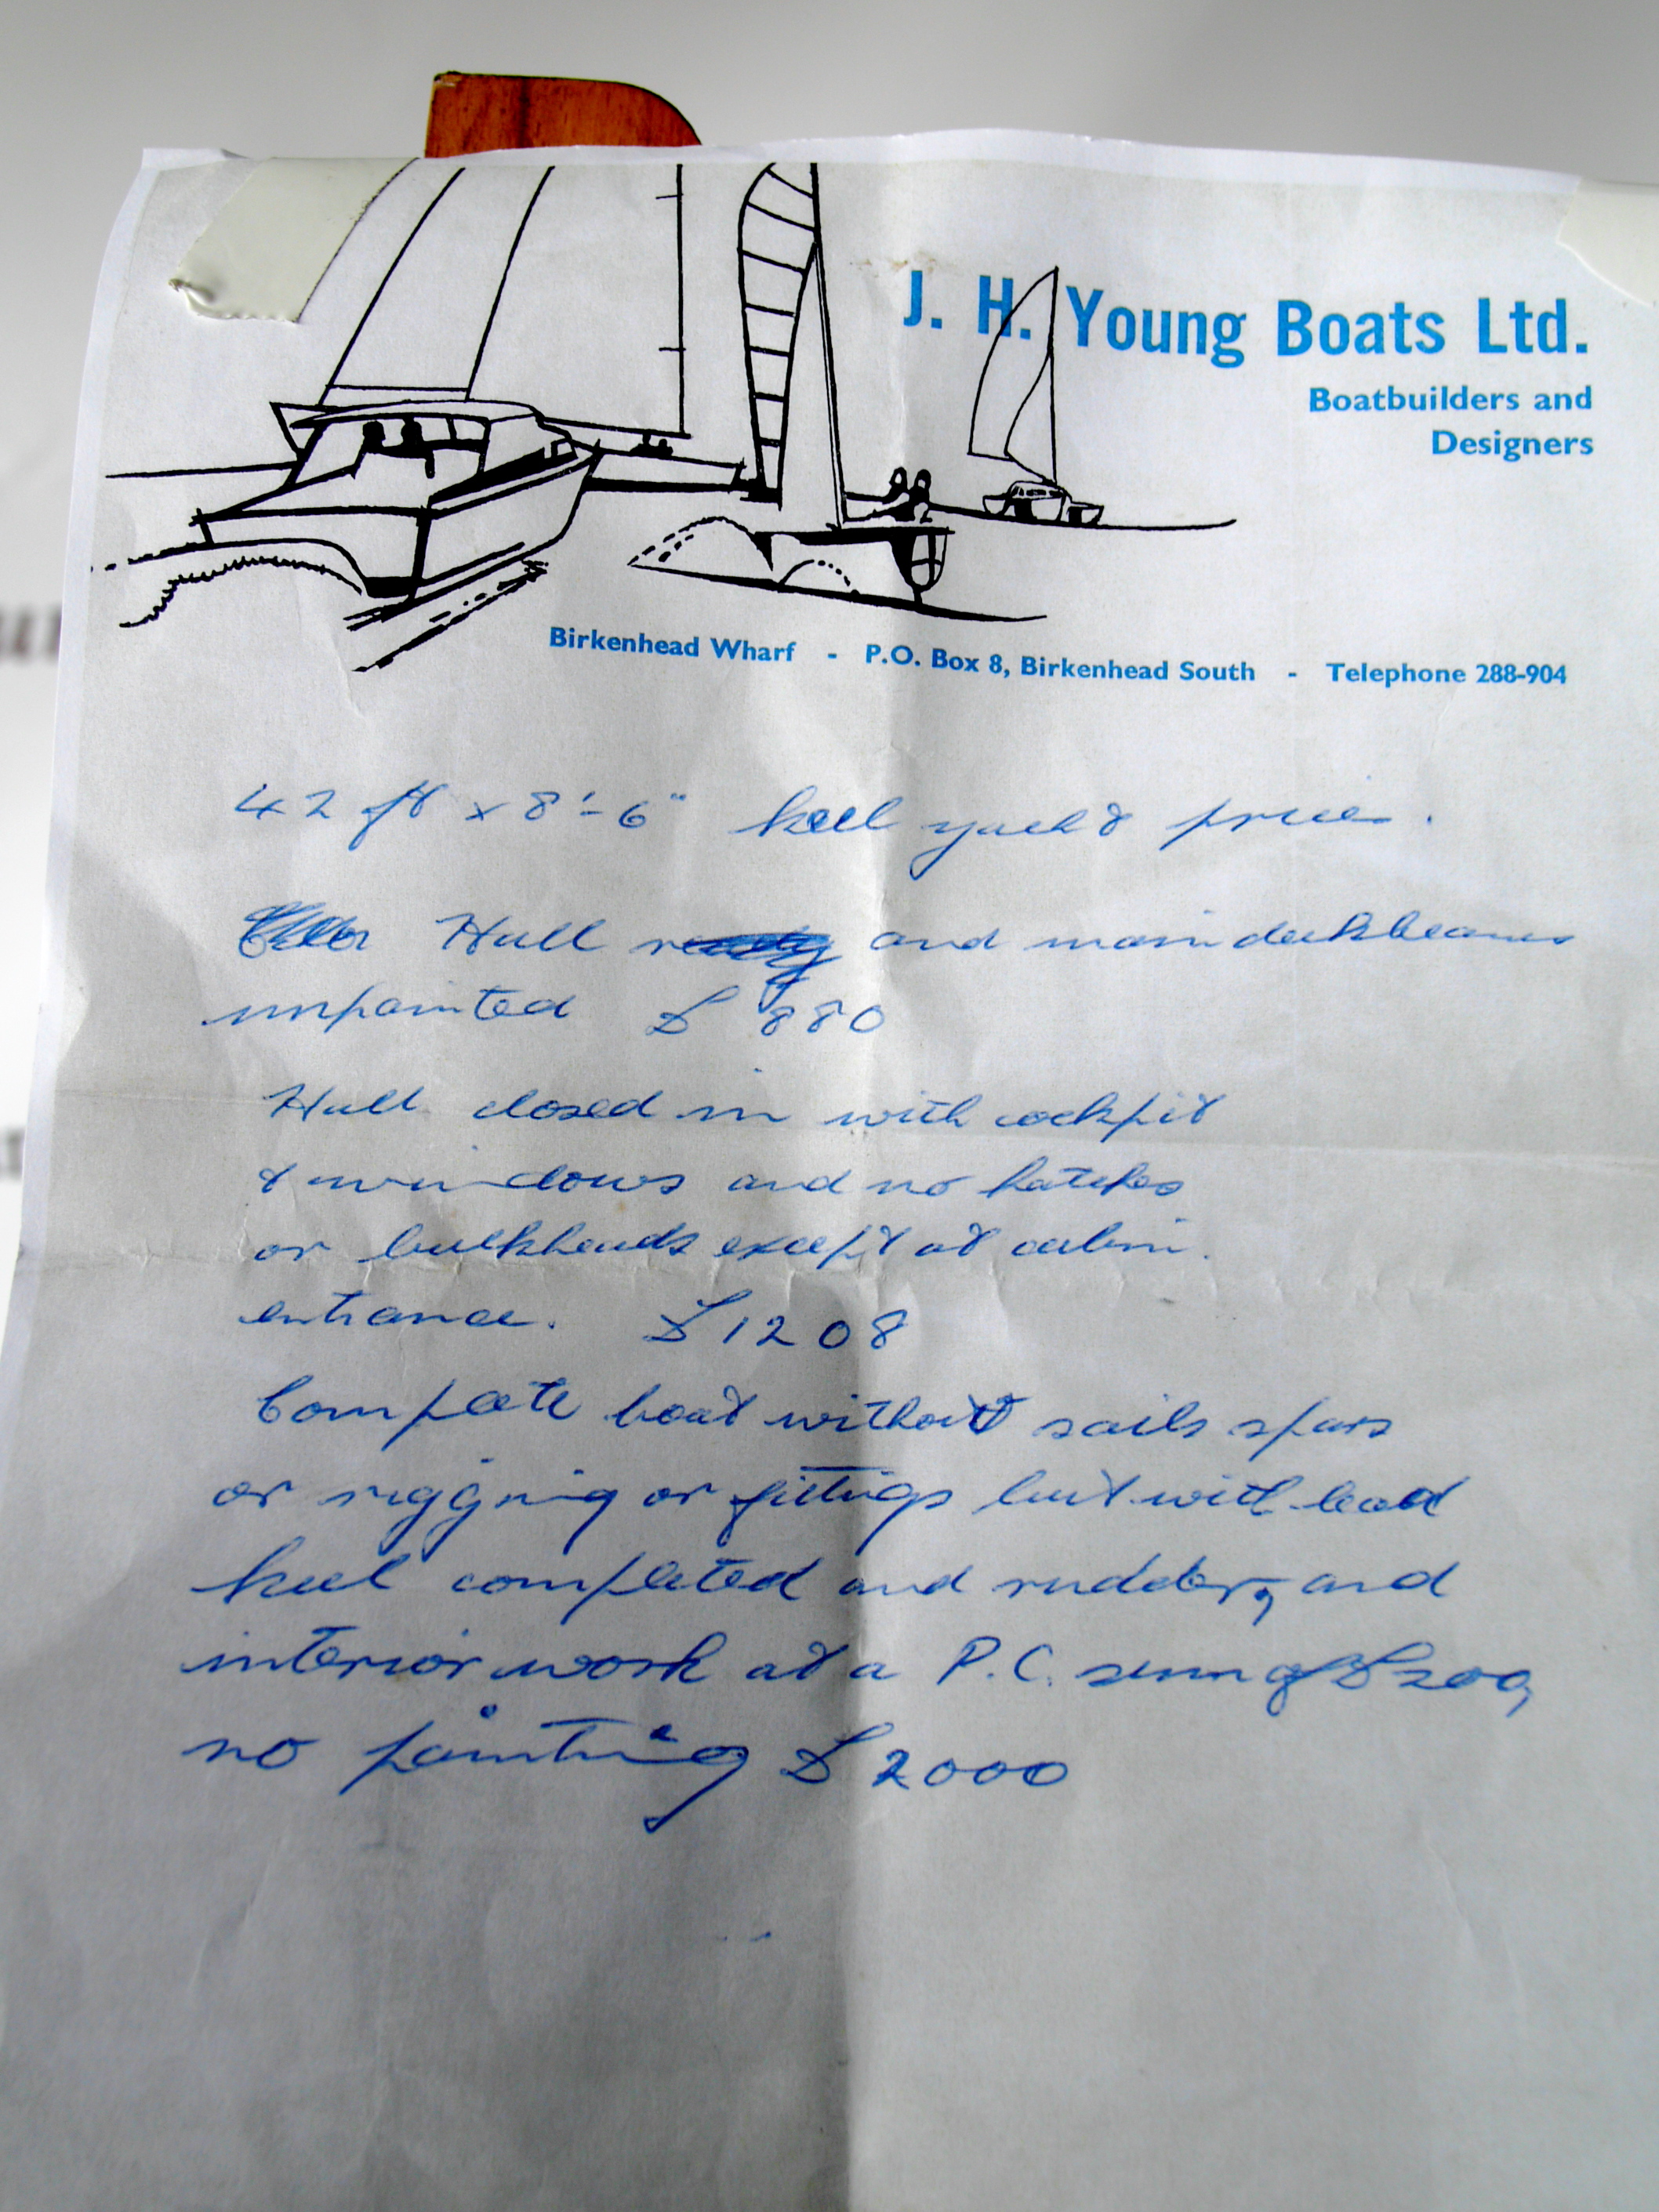 J. H. Young Boats Ltd.
Boatbuilders and
Designers
Birkenhead Wharf - P.O. Box 8, Birkenhead South - Telephone 288-904
42 ft x 8'-6" keel yacht prices.
Hull ready and main deckbeams
unpainted £ 880
Hull closed in with cockpit
& windows and no hatches
or bulkheads except at cabin.
entrance. £1208
Complete boat without sails spars
or rigging or fittings but with lead
keel completed and rudder, and
interior work at a P.C. sum of £200,
no painting £2000